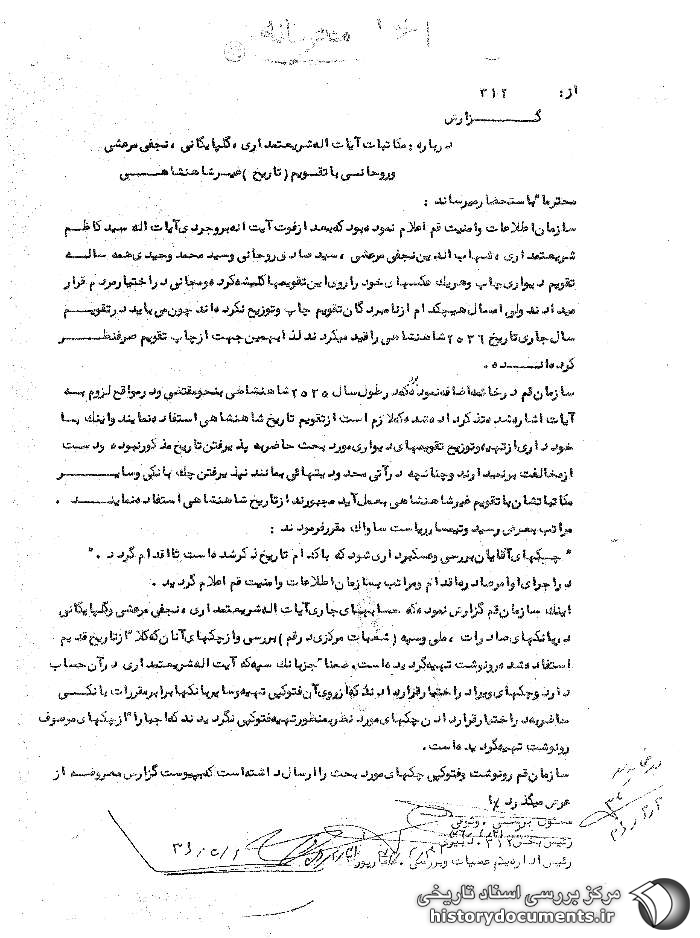 محرمانه
از: ۳۱۲
گــــزارش
درباره: مکاتبات آیات اله شریعتمداری، گلپایگانی، نجفی مرعشی
وروحانی با تقویم (تاریخ) غیرشاهنشاهــی
محترما" باستحضار میرساند :
سازمان اطلاعات وامنیت قم اعلام نموده بود که بعد از فوت آیت اله بروجردی آیات اله سید کاظم
شریعتمداری، شهاب الدین نجفی مرعشی، سید صادق روحانی وسید محمد وحیدی همه ساله
تقویم دیواری چاپ وهریک عکسهای خود را روی این تقویمها کلیشه کرده ومجانی در اختیار مردم قرار
میدادند ولی امسال هیچکدام از نامبردگان تقویم چاپ وتوزیع نکرده اند چون می باید در تقویــم
سال جاری تاریخ ۲۵۳۶ شاهنشاهی را قید میکردند لذا بهمین جهت از چاپ تقویم صرفنظــر
کرده انــد.
سازمان قم در خاتمه اضافه نموده بود که در طول سال ۲۵۳۵ شاهنشاهی بنحو مقتضی ودر مواقع لزوم بــه
آیات اشاره شده تذکر داده شده که لازم است از تقویم تاریخ شاهنشاهی استفاده نمایند واینک بــا
خودداری از تهیه وتوزیع تقویمهای دیواری مورد بحث حاضر به پذیرفتن تاریخ مذکور نبوده ودست
از مخالفت برنمیدارند وچنانچه در آتی محدودیتهائی بمانند نپذیرفتن چک بانکی وسایــر
مکاتباتشان با تقویم غیرشاهنشاهی بعمل آید مجبورند از تاریخ شاهنشاهی استفاده نماینــد .
مراتب بعرض رسید وتیمسار ریاست ساواک مقرر فرمودند :
" چـکهای آقایان بررسی وعکسبرداری شود که با کدام تاریخ ذکر شده است تا اقدام گردد ."
در اجرای اوامر صادره اقدام ومراتب بسازمان اطلاعات وامنیت قم اعلام گردید .
اینک سازمان قم گزارش نموده که حسابهای جاری آیات اله شریعتمداری، نجفی مرعشی وگلپایگانی
در بانکهای صادرات، ملی وسپه (شعبات مرکزی در قم) بررسی واز چکهای آنان که کلا" از تاریخ قدیم
استفاده شده رونوشت تهیه گردیده است. ضمنا" جز بانک سپه که آیت اله شریعتمداری در آن حساب
دارد وچکهای ویرا در اختیار قرار دادند که از روی آن فتوکپی تهیه وسایر بانکها برابر مقررات بانکــی
حاضر به در اختیار قرار دادن چکهای مورد نظر بمنظور تهیه فتوکپی نگردیدند که اجبارا" از چکهای موصوف
رونوشت تهیه گردیده است.
سازمان قم رونوشت وفتوکپی چکهای مورد بحث را ارسال داشته است که بپیوست گزارش معروضــه از
عرض میگذرد.
مسئول بررسی .
رئیس بخش ۳۱۲ .
رئیس اداره یکم عملیات وبررسی .
مرکز بررسی اسناد تاریخی
historydocuments.ir